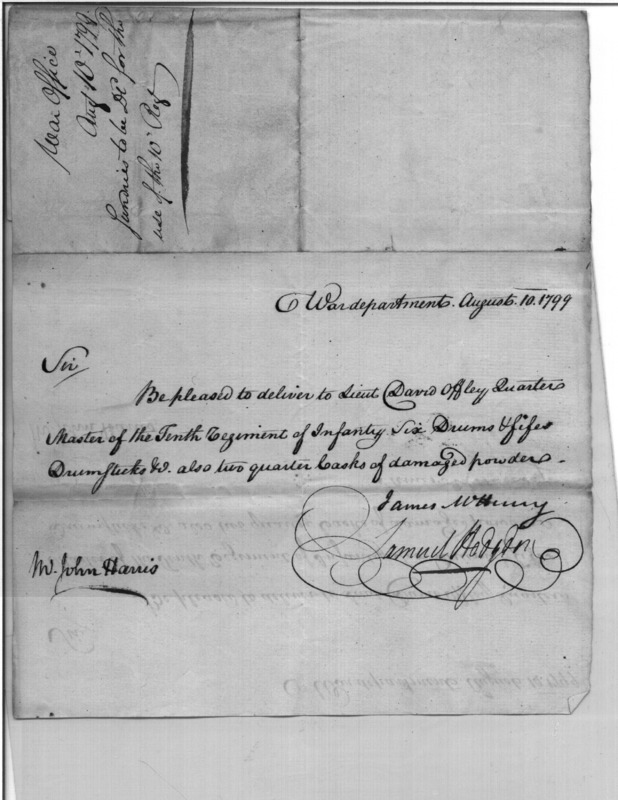 War Office
Aug 10th 1799
Sundries to be Dd for the
use of the 10th Regt
War department. August. 10. 1799
Sir
Be pleased to deliver to Lieut David Offley Quarter
Master of the Tenth Regiment of Infantry Six Drums & fifes
Drumsticks &c. also two quarter Casks of damaged powder.
James McHenry
Samuel Hodgdon
Mr. John Harris